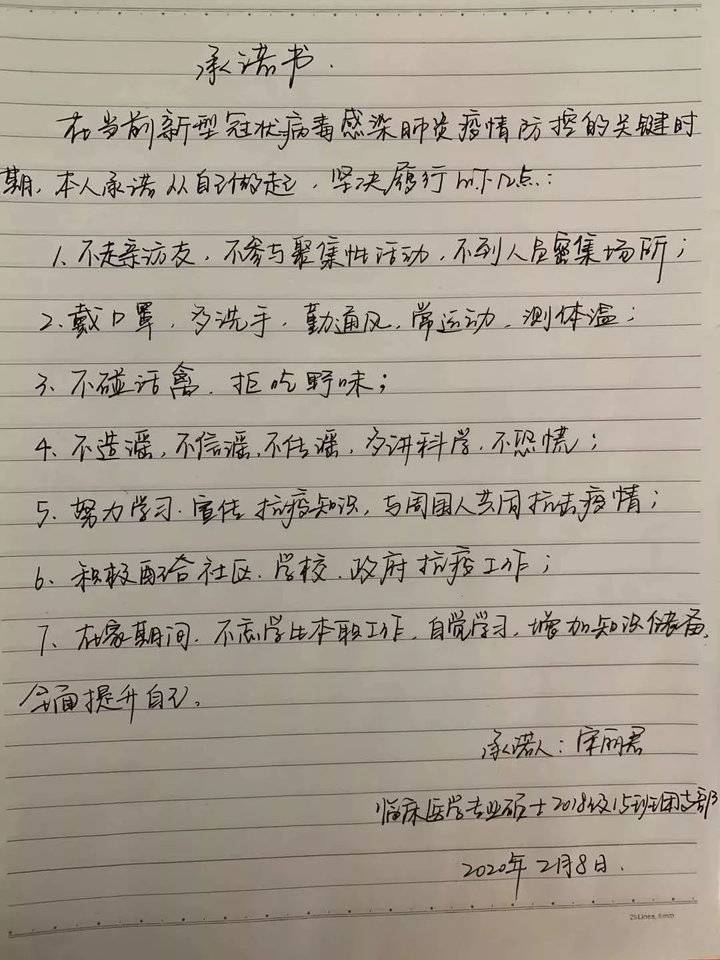 承诺书.
在当前新型冠状病毒感染肺炎疫情防控的关键时
期,本人承诺从自己做起,坚决履行以下几点:
1、不走亲访友,不参与聚集性活动,不到人员密集场所;
2、戴口罩,多洗手,勤通风,常运动,测体温;
3、不碰活禽,拒吃野味;
4、不造谣,不信谣,不传谣,多讲科学,不恐慌;
5、努力学习、宣传抗疫知识,与周围人共同抗击疫情;
6、积极配合社区、学校、政府抗疫工作;
7、在家期间,不忘学生本职工作,自觉学习,增加知识储备,
全面提升自己。
承诺人:宋丽君
临床医学专业硕士2018级15班团支部
2020年2月8日.
25Lines, 8mm